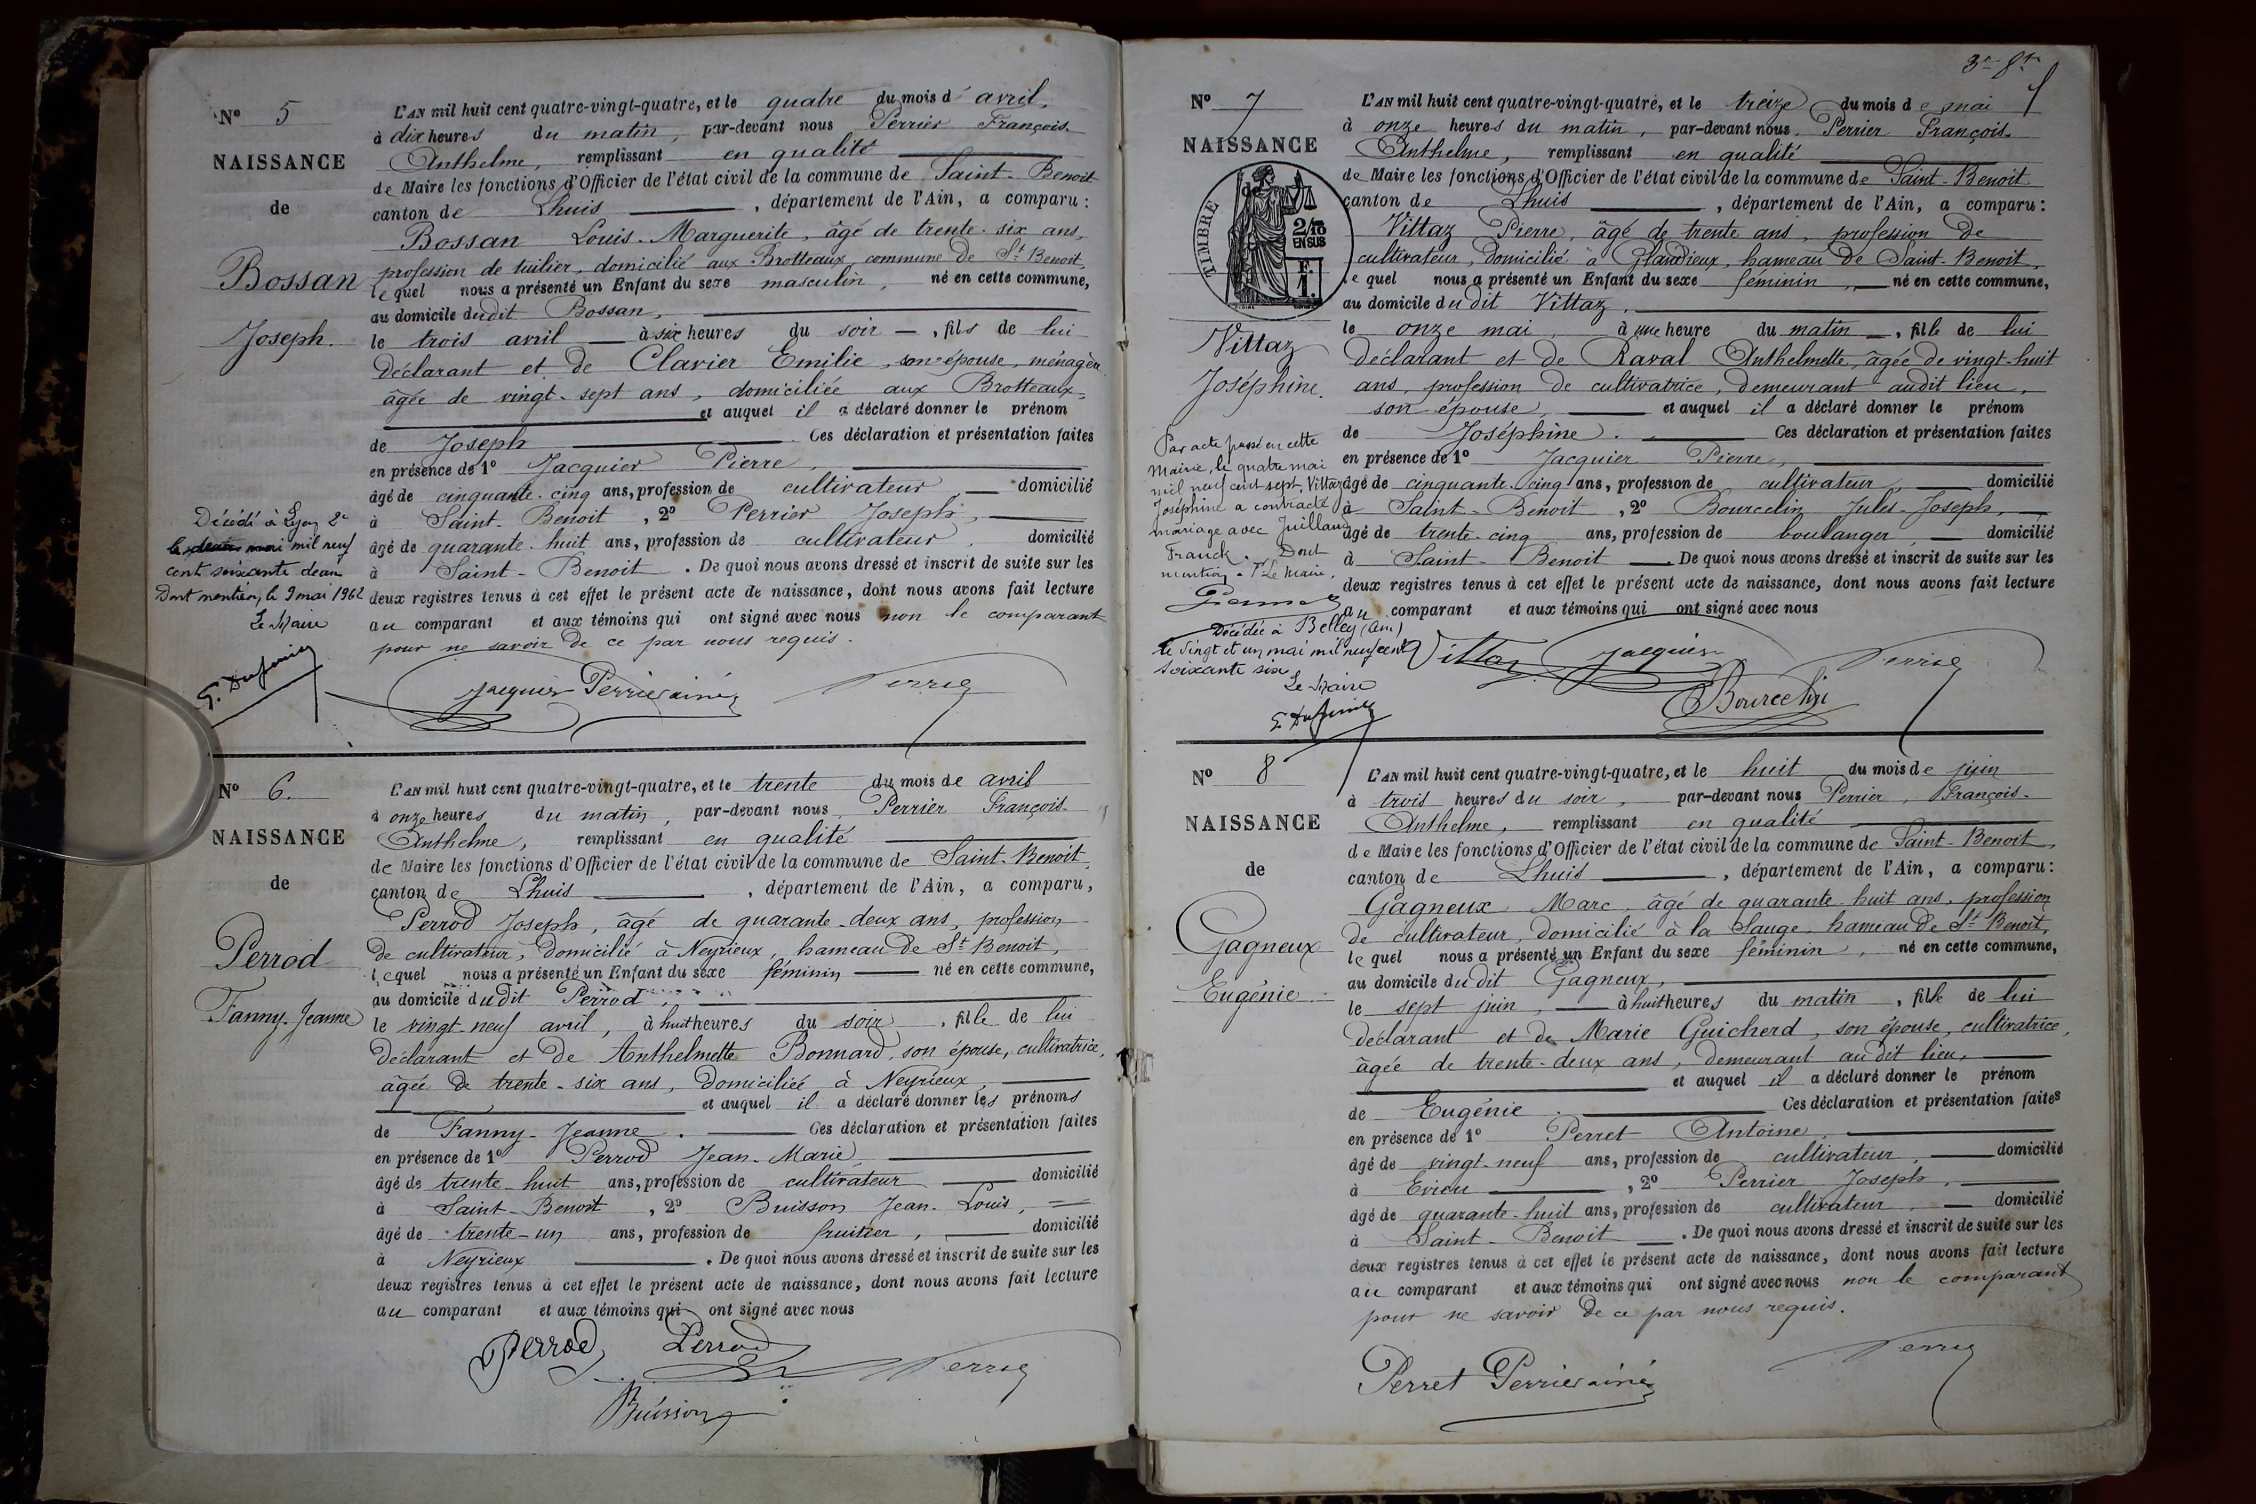 N° 5
NAISSANCE
de
Bossan
Joseph.
L'AN mil huit cent quatre-vingt-quatre, et le quatre du mois d' avril,
à dix heures du matin, par-devant nous Perrier François-
Anthelme, remplissant en qualité
de Maire les fonctions d'Officier de l'état civil de la commune de Saint-Benoit
canton de Lhuis, département de l'Ain, a comparu :
Bossan Louis-Marguerite, âgé de trente-six ans,
profession de tuilier, domicilié aux Brotteaux, commune de St Benoit,
lequel nous a présenté un Enfant du sexe masculin, né en cette commune,
au domicile dudit Bossan,
le trois avril à six heures du soir, fils de lui
déclarant et de Clavier Emilie, son épouse, ménagère
âgée de vingt-sept ans, domiciliée aux Brotteaux,
et auquel il a déclaré donner le prénom
de Joseph Ces déclaration et présentation faites
en présence de 1° Jacquier Pierre,
âgé de cinquante-cinq ans, profession de cultivateur, domicilié
à Saint-Benoit, 2° Perrier Joseph,
âgé de quarante-huit ans, profession de cultivateur, domicilié
à Saint-Benoit. De quoi nous avons dressé et inscrit de suite sur les
deux registres tenus à cet effet le présent acte de naissance, dont nous avons fait lecture
au comparant et aux témoins qui ont signé avec nous non le comparant
pour ne savoir de ce par nous requis.
Décédé à Lyon 2e
le mai mil neuf
cent soixante deux
Dont mention, le 9 mai 1962
Le Maire
Jacquier Perrier ainé Perrier
N° 6.
NAISSANCE
de
Perrod
Fanny-Jeanne
L'AN mil huit cent quatre-vingt-quatre, et le trente du mois de avril
à onze heures du matin, par-devant nous Perrier François-
Anthelme, remplissant en qualité
de Maire les fonctions d'Officier de l'état civil de la commune de Saint-Benoit,
canton de Lhuis, département de l'Ain, a comparu,
Perrod Joseph, âgé de quarante-deux ans, profession
de cultivateur, domicilié à Neyrieux hameau de St Benoit,
lequel nous a présenté un Enfant du sexe féminin né en cette commune,
au domicile dudit Perrod,
le vingt-neuf avril, à huit heures du soir, fille de lui
déclarant et de Anthelmette Bonnard, son épouse, cultivatrice,
âgée de trente-six ans, domiciliée à Neyrieux,
et auquel il a déclaré donner les prénoms
de Fanny-Jeanne. Ces déclaration et présentation faites
en présence de 1° Perrod Jean-Marie
âgé de trente-huit ans, profession de cultivateur domicilié
à Saint-Benoit, 2° Buisson Jean-Louis,
âgé de trente-un ans, profession de fruitier, domicilié
à Neyrieux. De quoi nous avons dressé et inscrit de suite sur les
deux registres tenus à cet effet le présent acte de naissance, dont nous avons fait lecture
au comparant et aux témoins qui ont signé avec nous
Perrod Perrod Perrier
Buisson
N° 7
NAISSANCE
de
TIMBRE
2/10
EN SUS
F.
1.
Vittaz
Joséphine.
L'AN mil huit cent quatre-vingt-quatre, et le treize du mois de mai
à onze heures du matin, par-devant nous Perrier François-
Anthelme, remplissant en qualité
de Maire les fonctions d'Officier de l'état civil de la commune de Saint-Benoit
canton de Lhuis, département de l'Ain, a comparu :
Vittaz Pierre, âgé de trente ans, profession de
cultivateur, domicilié à Glandieux, hameau de Saint-Benoit,
lequel nous a présenté un Enfant du sexe féminin, né en cette commune,
au domicile dudit Vittaz,
le onze mai, à une heure du matin, fille de lui
déclarant et de Raval Anthelmette, âgée de vingt-huit
ans, profession de cultivatrice, demeurant audit lieu,
son épouse, et auquel il a déclaré donner le prénom
de Joséphine. Ces déclaration et présentation faites
en présence de 1° Jacquier Pierre,
âgé de cinquante-cinq ans, profession de cultivateur, domicilié
à Saint-Benoit, 2° Bourcelin Jules-Joseph,
âgé de trente-cinq ans, profession de boulanger, domicilié
à Saint-Benoit. De quoi nous avons dressé et inscrit de suite sur les
deux registres tenus à cet effet le présent acte de naissance, dont nous avons fait lecture
au comparant et aux témoins qui ont signé avec nous
Par acte passé en cette
Mairie, le quatre mai
mil neuf cent sept, Vittaz
Joséphine a contracté
mariage avec Juilland
Franck. Dont
mention. Le Maire,
Décédée à Belley (Ain)
le vingt et un mai mil neuf cent
soixante six
Le Maire
Vittaz Jacquier Perrier
Bourcelin
N° 8
NAISSANCE
de
Gagneux
Eugénie
L'AN mil huit cent quatre-vingt-quatre, et le huit du mois de juin
à trois heures du soir, par-devant nous Perrier, François-
Anthelme, remplissant en qualité
de Maire les fonctions d'Officier de l'état civil de la commune de Saint-Benoit,
canton de Lhuis, département de l'Ain, a comparu :
Gagneux Marc, âgé de quarante-huit ans, profession
de cultivateur, domicilié à la Sauge, hameau de St Benoit,
lequel nous a présenté un Enfant du sexe féminin, né en cette commune,
au domicile dudit Gagneux,
le sept juin, à huit heures du matin, fille de lui
déclarant et de Marie Guicherd, son épouse, cultivatrice,
âgée de trente-deux ans, demeurant audit lieu,
et auquel il a déclaré donner le prénom
de Eugénie. Ces déclaration et présentation faites
en présence de 1° Perret Antoine,
âgé de vingt-neuf ans, profession de cultivateur, domicilié
à Evieu, 2° Perrier Joseph,
âgé de quarante-huit ans, profession de cultivateur, domicilié
à Saint-Benoit. De quoi nous avons dressé et inscrit de suite sur les
deux registres tenus à cet effet le présent acte de naissance, dont nous avons fait lecture
au comparant et aux témoins qui ont signé avec nous non le comparant
pour ne savoir de ce par nous requis.
Perret Perrier ainé Perrier